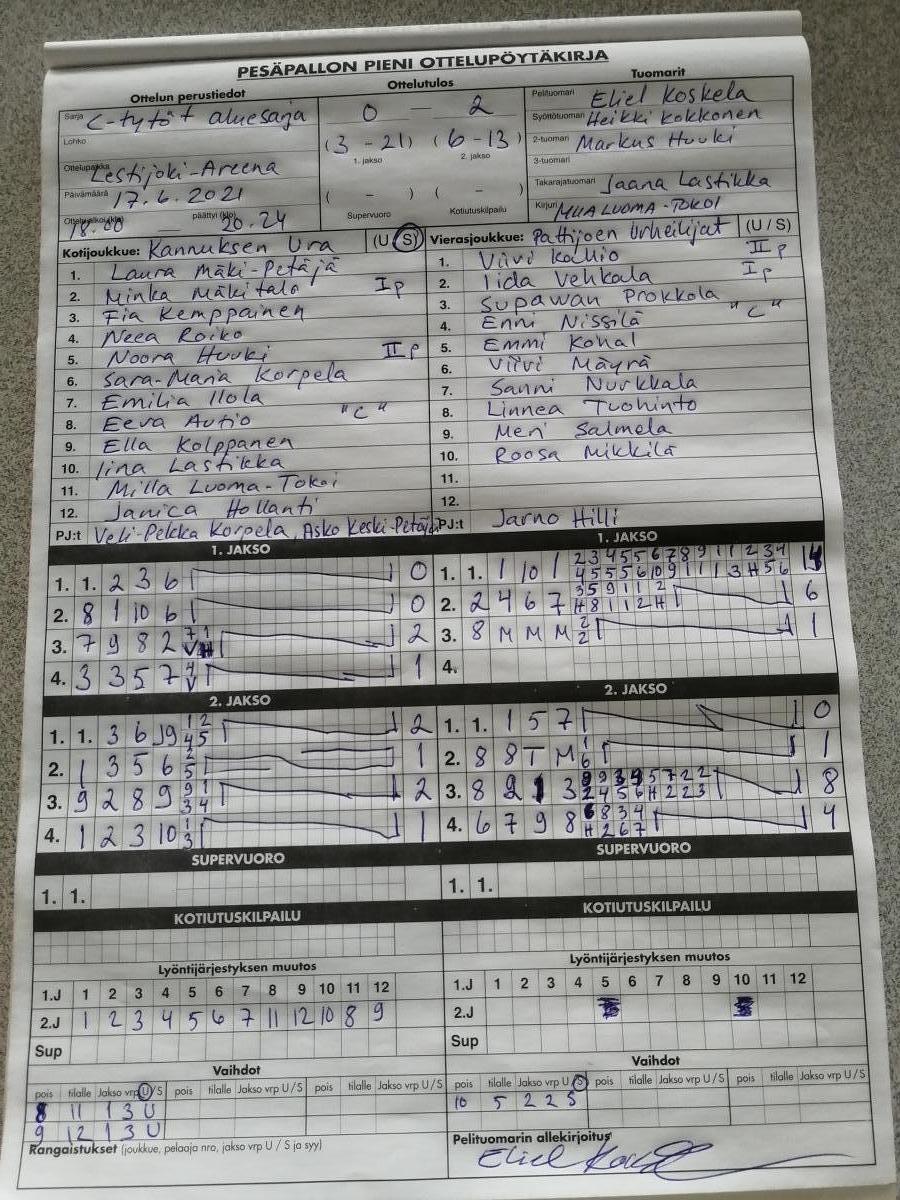 PESÄPALLON PIENI OTTELUPÖYTÄKIRJA
Ottelun perustiedot
Sarja C-tytöt aluesarja
Lohko
Ottelupaikka Lestijoki-Areena
Päivämäärä 17.6.2021
Ottelu alkoi (klo) 18.00 — päättyi (klo) 20.24
Ottelutulos
0 — 2
(3 - 21) (6 - 13)
1. jakso 2. jakso
( - ) ( - )
Supervuoro Kotiutuskilpailu
Tuomarit
Pelituomari Eliel Koskela
Syöttötuomari Heikki Kokkonen
2-tuomari Markus Huuki
3-tuomari
Takarajatuomari Jaana Lastikka
Kirjuri MIIA LUOMA-TOKOI
Kotijoukkue: Kannuksen Ura (U/S)
1. Laura Mäki-Petäjä
2. Minka Mäkitalo I p
3. Fia Kemppainen
4. Neea Roiko
5. Noora Huuki II p
6. Sara-Maria Korpela
7. Emilia Ilola
8. Eeva Autio "C"
9. Ella Kolppanen
10. Iina Lastikka
11. Milla Luoma-Tokoi
12. Janica Hollanti
PJ:t Veli-Pekka Korpela, Asko Keski-Petäjä
Vierasjoukkue: Pattijoen Urheilijat (U/S)
1. Viivi Kallio II p
2. Iida Vehkala I p
3. Supawan Prokkola
4. Enni Nissilä "C"
5. Emmi
6. Viivi Mäyrä
7. Sanni Nurkkala
8. Linnea Tuohinto
9. Meri Salmela
10. Roosa Mikkilä
11.
12.
PJ:t Jarno Hilli
1. JAKSO
1. 1. 2 3 6 0
2. 8 1 10 6 0
3. 7 9 8 2 2
4. 3 3 5 7 1
2. JAKSO
1. 1. 3 6 2
2. 1 3 5 6 1
3. 9 2 8 9 2
4. 1 2 3 10 1
SUPERVUORO
1. 1.
KOTIUTUSKILPAILU
1. JAKSO
1. 1. 1 10 1
2. 2 4 6 7 6
3. 8 M M M 1
4.
2. JAKSO
1. 1. 1 5 7 0
2. 8 8 T M 1
3. 8 3 8
4. 6 7 9 8 4
SUPERVUORO
1. 1.
KOTIUTUSKILPAILU
Lyöntijärjestyksen muutos
1.J 1 2 3 4 5 6 7 8 9 10 11 12
2.J 1 2 3 4 5 6 7 11 12 10 8 9
Sup
Vaihdot
pois tilalle Jakso vrp U/S pois tilalle Jakso vrp U/S pois tilalle Jakso vrp U/S
8 11 1 3 U
9 12 1 3 U
Rangaistukset (joukkue, pelaaja nro, jakso vrp U / S ja syy)
Lyöntijärjestyksen muutos
1.J 1 2 3 4 5 6 7 8 9 10 11 12
2.J
Sup
Vaihdot
pois tilalle Jakso vrp U/S pois tilalle Jakso vrp U/S pois tilalle Jakso vrp U/S
10 5 2 2 S
Pelituomarin allekirjoitus
Eliel